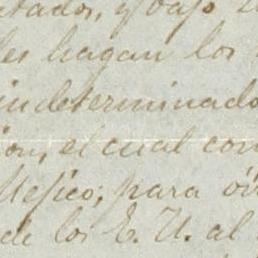 tados, y bajo
les hagan los
indeterminado
ion, el cual con
Mejico; para
de los E. U. al